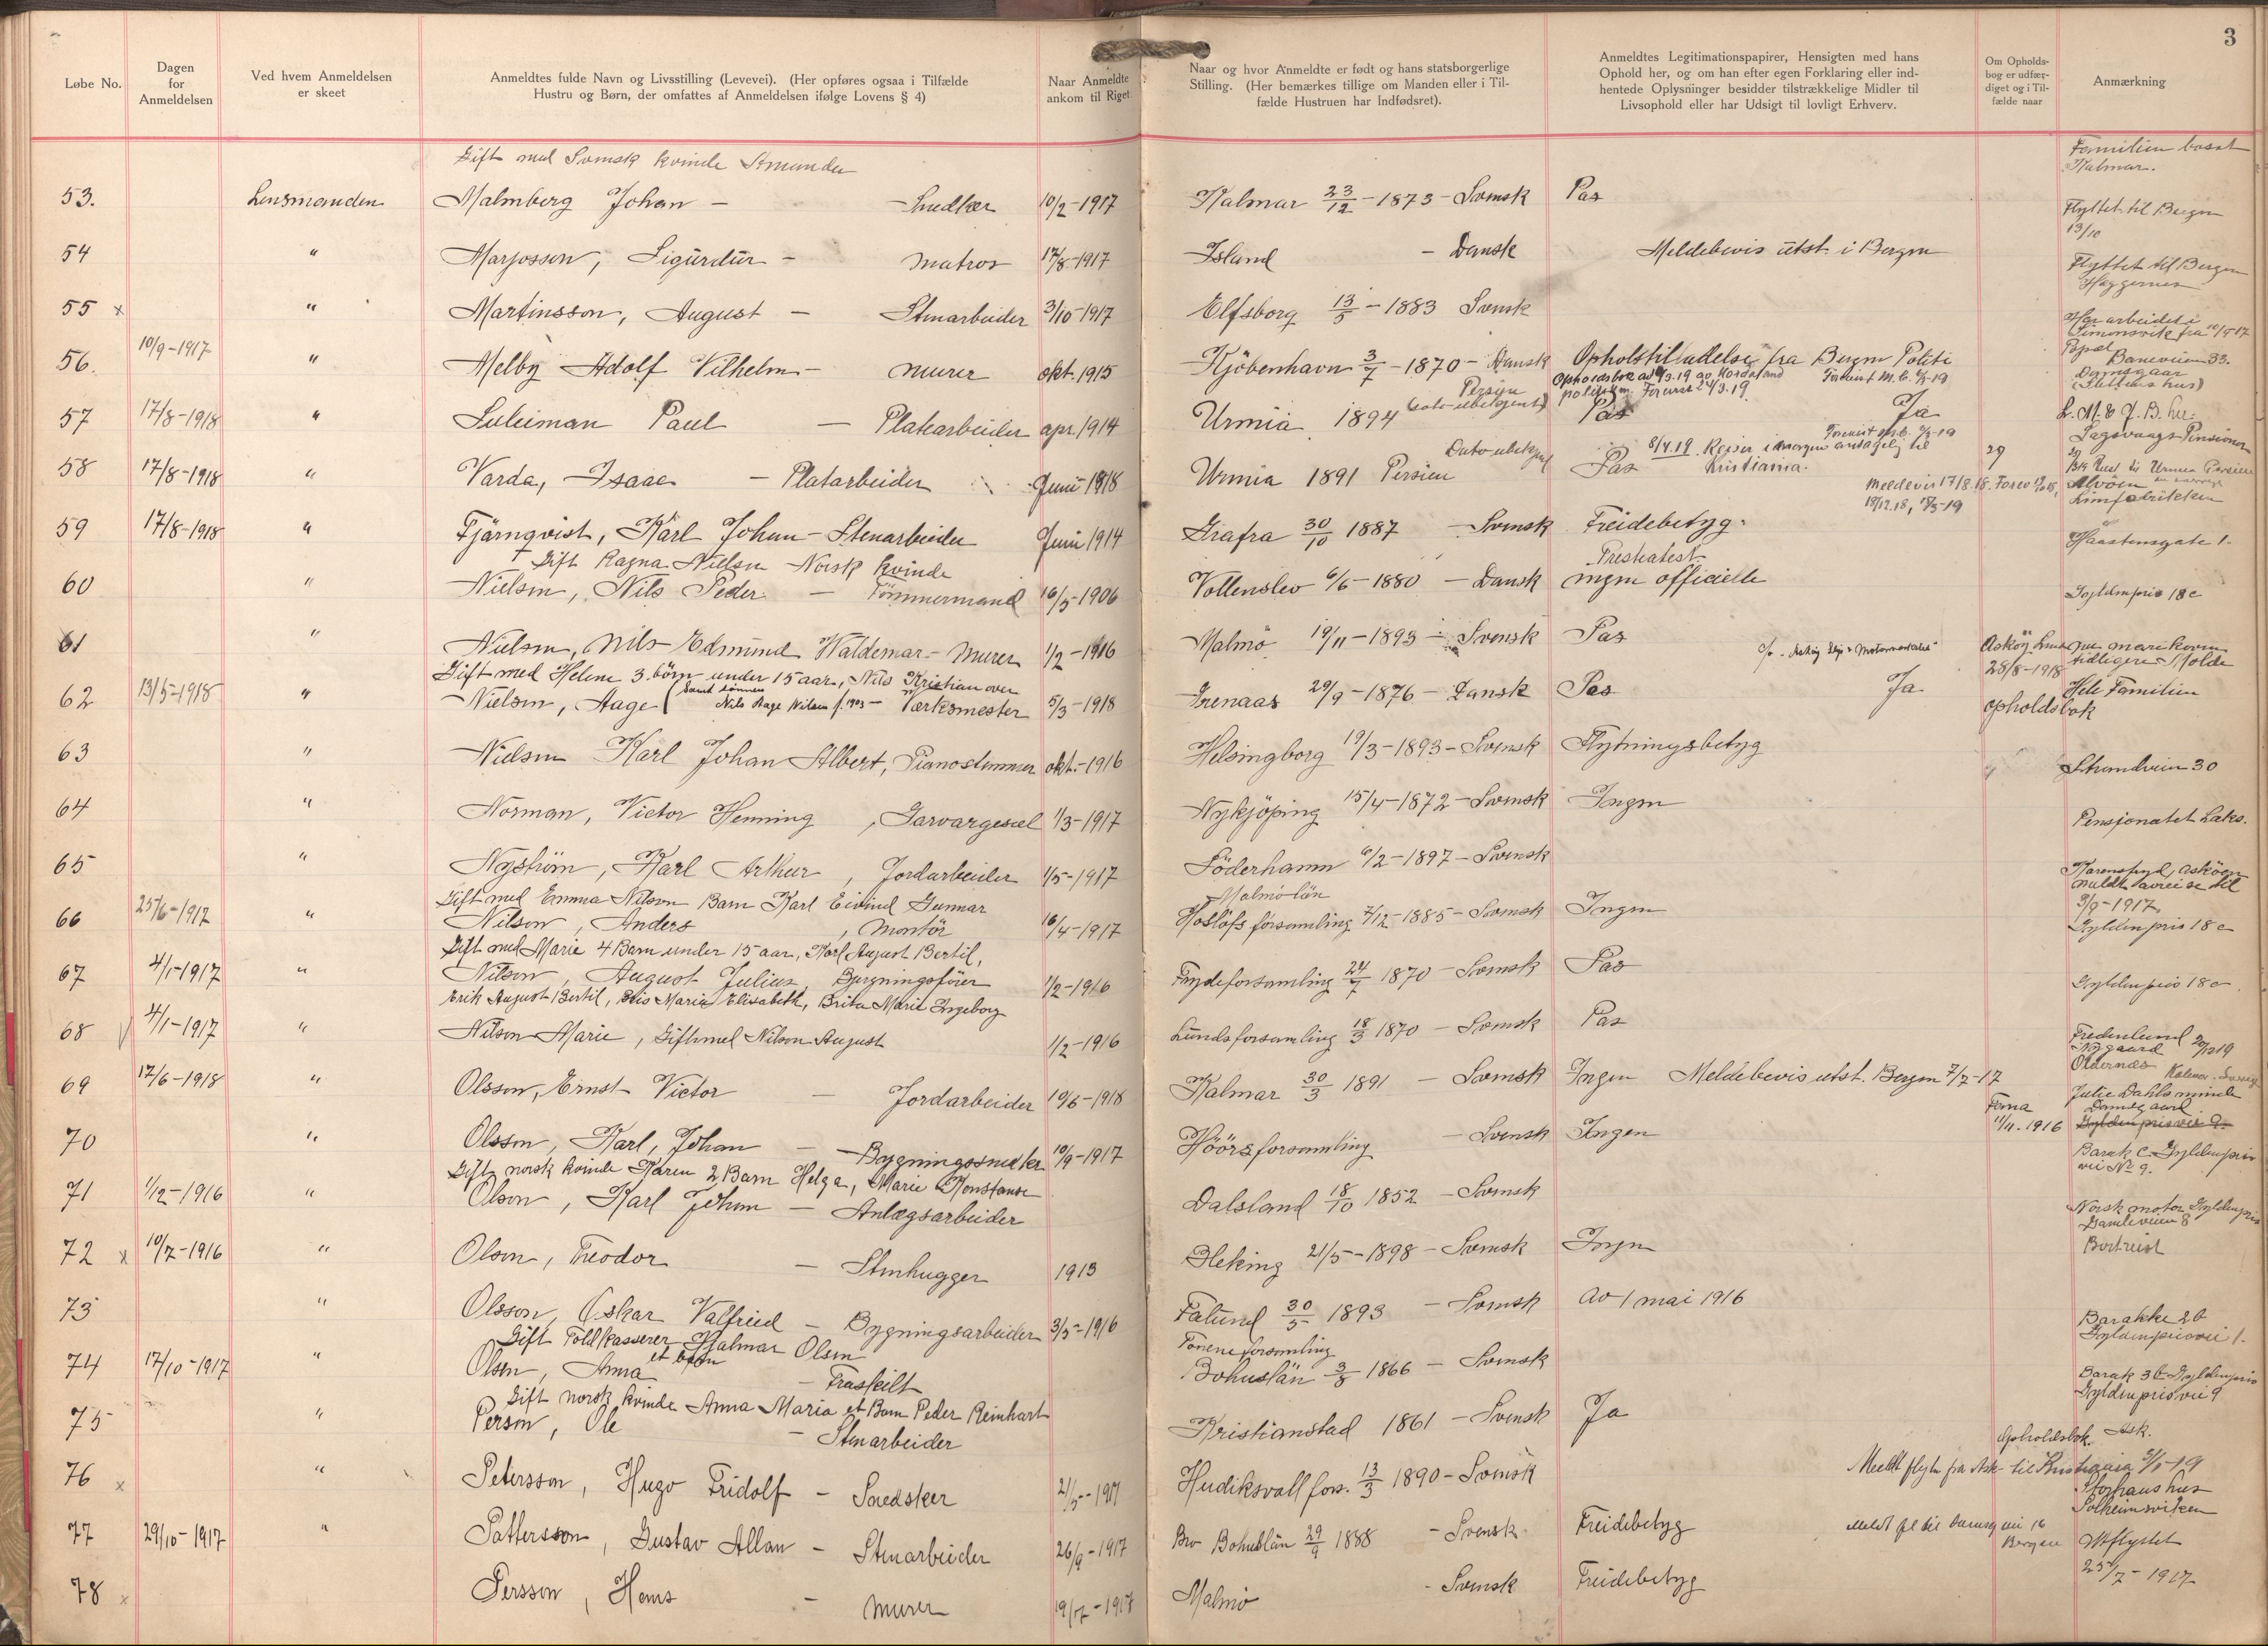 3
Løbe No.
Dagen for Anmeldelsen
Ved hvem Anmeldelsen er skeet
Anmeldtes fulde Navn og Livsstilling (Levevei). (Her opføres ogsaa i Tilfælde Hustru og Børn, der omfattes af Anmeldelsen ifølge Lovens § 4)
Naar Anmeldte ankom til Riget
Naar og hvor Anmeldte er født og hans statsborgerlige Stilling. (Her bemærkes tillige om Manden eller i Tilfælde Hustruen har Indfødsret).
Anmeldtes Legitimationspapirer, Hensigten med hans Ophold her, og om han efter egen Forklaring eller indhentede Oplysninger besidder tilstrækkelige Midler til Livsophold eller har Udsigt til lovligt Erhverv.
Om Opholdsbog er udfærdiget og i Tilfælde naar
Anmærkning
Gift med Svensk kvinde Amanda
Familien bosat Kalmar.
53. Lensmanden Malmberg Johan - Snedker 10/2-1917 Kalmar 23/12-1873 - Svensk Pas
Flyttet til Bergen 13/10
54 " Marjosson, Sigurdur - Matros 17/8-1917 Island - Dansk Meldebevis utst. i Bergen
Flyttet til Bergen
55 x " Martinsson, August - Stenarbeider 3/10-1917 Elfsborg 13/5-1883 Svensk
Har arbeidet i Simonsvik fra
56. 10/9-1917 " Melby Adolf Vilhelm - Murer okt. 1915 Kjöbenhavn 3/7-1870 - Dansk Opholstilladelse fra Bergen Politi
Baneveien 33.
Damsgaar
57 17/8-1918 " Suleiman Paul - Platearbeider apr. 1914 Urmia 1894 Persien (dato ubekjent) Pas Ja
58 17/8-1918 " Varda, Isaac - Platarbeider Juni 1918 Urmia 1891 Persien Dato ubekjent Pas
8/4.19 Reiser i morgen til Kristiania.
Meldevis 17/8.18.
59 17/8-1918 " Fjärnqvist, Karl Johan - Stenarbeider Juni 1914 Grafra 30/10 1887 - Svensk Freidebetyg.
Gift Ragna Nielsen Norsk kvinde
Prestatest
60 " Nielsen, Nils Peder - Tömmermand 16/5-1906 Vollenslev 6/6-1880 - Dansk ingen officielle
Gyldenpris 18 c
61 " Nielsen, Nils Edmund Waldemar - Murer 1/2-1916 Malmö 19/11-1893 - Svensk Pas
28/8-1918 tidligere Molde
Gift med Helene 3 börn under 15 aar, Nils Kristian over
62 13/5-1918 " Nielsen, Aage (Samt sönnen Nils Aage Nilsen f. 1903 - Værksmester 5/3-1918 Grenaas 29/9-1876 - Dansk Pas Ja
Hele Familien opholdsbok
63 " Nielsen Karl Johan Albert, Pianostemmer okt.-1916 Helsingborg 19/3-1893 - Svensk Flytningsbetyg
Strandveien 30
64 " Norman, Victor Henning, Garvargesel 1/3-1917 Nykjöping 15/4-1872 - Svensk Ingen
Pensjonatet Laks.
65 " Nyström, Karl Arthur, Jordarbeider 1/5-1917 Söderhamn 6/2-1897 - Svensk
meldt avreise til 3/9-1917
Gift med Emma Nilson Barn Karl Eivind Gunnar
Malmölän
66 25/6-1917 " Nilson, Anders, Montör 16/4-1917 Hoslöfs forsamling 7/12-1885 - Svensk Ingen
Gyldenpris 18 c
Gift med Marie 4 Barn under 15 aar, Karl August Bertil,
67 4/1-1917 " Nilson, August Julius, Bygningsförer 1/2-1916 forsamling 24/7 1870 - Svensk Pas
Gyldenpris 18 c.
Erik August Bertil, Maria Elisabeth, Brita Marie Ingeborg
68 4/1-1917 " Nilson Marie, Gift med Nilson August 1/2-1916 Lundsforsamling 18/3 1870 - Svensk Pas
69 17/6-1918 " Olsson, Ernst Victor - Jordarbeider 10/6-1918 Kalmar 30/3 1891 - Svensk Ingen Meldebevis utst. Bergen 7/7-17
Julie Dahls minde
Damsgaard
Gyldenprisvei 9
70 " Olsson, Karl, Johan - Bygningssnedker 10/9-1917 Höörs forsamling - Svensk Ingen 11/11. 1916
Barak C Gyldenpris vei No 9.
Gift norsk kvinde Karen 2 Barn Helga, Marie Konstanse
71 1/12-1916 " Olson, Karl Johan - Anlægsarbeider Dalsland 18/10 1852 - Svensk
Norsk motor Gyldenpris
72 x 10/7-1916 " Olson, Theodor - Stenhugger 1913 Bleking 21/5-1898 - Svensk Ingen
Bortreist
73 " Olsson, Oskar Valfried - Bygningsarbeider 3/5-1916 Falund 30/5 1893 - Svensk Av 1 mai 1916
Barakke 2b
Gyldenprisvei 1.
Gift Toldkasserer Hjalmar Olsen et barn
74 17/10-1917 " Olsen, Anna - Fraskilt Tanene forsamling Bohuslän 3/8 1866 - Svensk
Barak 3b Gyldenpris
Gyldenprisvei 9
Gift norsk kvinde Anna Maria et Barn Peder Reinhart
75 " Persen, Ole - Stenarbeider Kristianstad 1861 - Svensk Ja
Opholdsbok. Ask.
76 x " Petersson, Hugo Fridolf - Snedsker 21/5-1917 Hudiksvall fors. 13/3 1890 - Svensk
Meldt flytn fra Ask til Kristiania
Solheimsviken
77 29/10-1917 " Pattersson, Gustav Allan - Stenarbeider 26/9-1917 Bro Bohuslän 29/9 1888 - Svensk Freidebetyg
Bergen
Utflyttet 25/7-1917
78 x " Persson, Hans - Murer 19/7-1917 Malmö - Svensk Freidebetyg